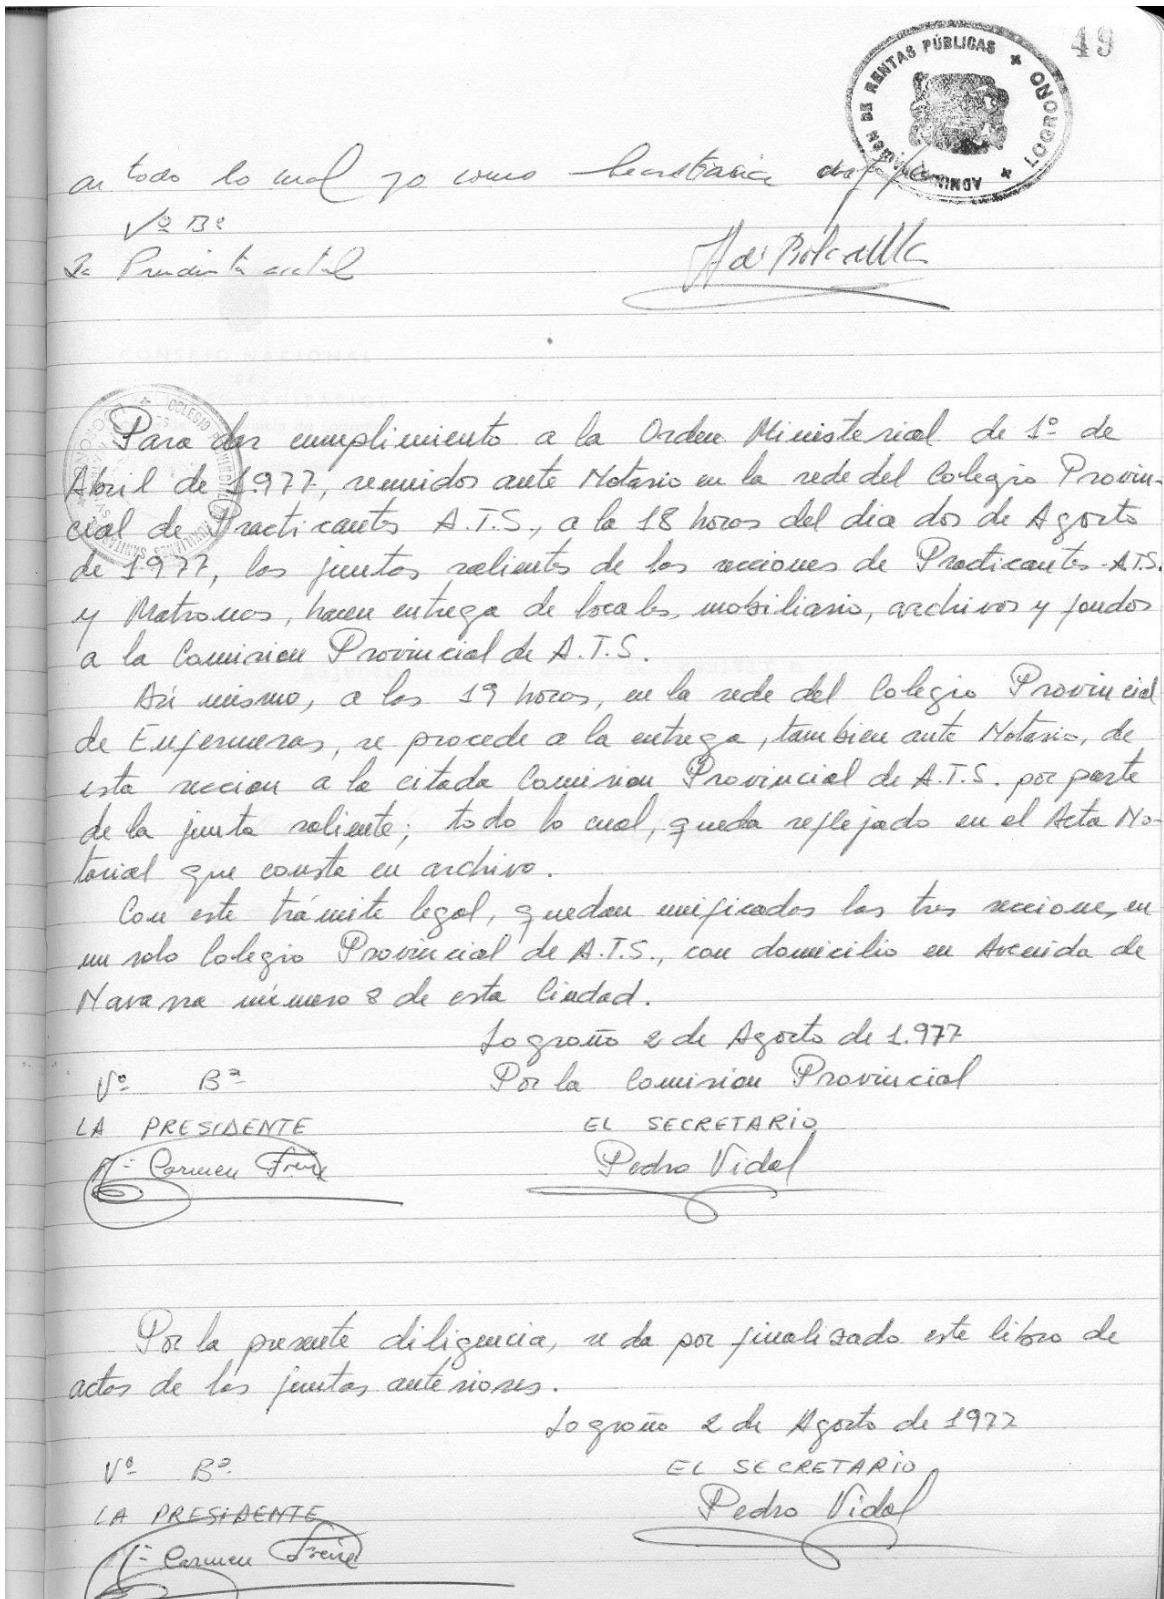 49
ADMINISTRACIÓN DE RENTAS PÚBLICAS × LOGROÑO ×
todo lo cual yo como Secretaria
Vº Bº
La Presidenta
Para dar cumplimiento a la Orden Ministerial de 1º de
Abril de 1.977, reunidos ante Notario en la sede del Colegio Provin-
cial de Practicantes A.T.S., a la 18 horas del dia dos de Agosto
de 1.977, las juntas salientes de las secciones de Practicantes-A.T.S.
y Matronas, hacen entrega de locales, mobiliario, archivos y fondos
a la Comision Provincial de A.T.S.
Asi mismo, a las 19 horas, en la sede del Colegio Provincial
de Enfermeras, se procede a la entrega, tambien ante Notario, de
esta seccion a la citada Comision Provincial de A.T.S. por parte
de la junta saliente; todo lo cual, queda reflejado en el Acta No-
tarial que consta en archivo.
Con este trámite legal, quedan unificadas las tres secciones, en
un solo Colegio Provincial de A.T.S., con domicilio en Avenida de
Navarra número 8 de esta Ciudad.
Logroño 2 de Agosto de 1.977
Vº Bº Por la Comision Provincial
LA PRESIDENTE EL SECRETARIO
Mª Carmen Freire Pedro Vidal
Por la presente diligencia, se da por finalizado este libro de
actas de las juntas anteriores.
Logroño 2 de Agosto de 1977
Vº Bº EL SECRETARIO
LA PRESIDENTE Pedro Vidal
Mª Carmen Freire